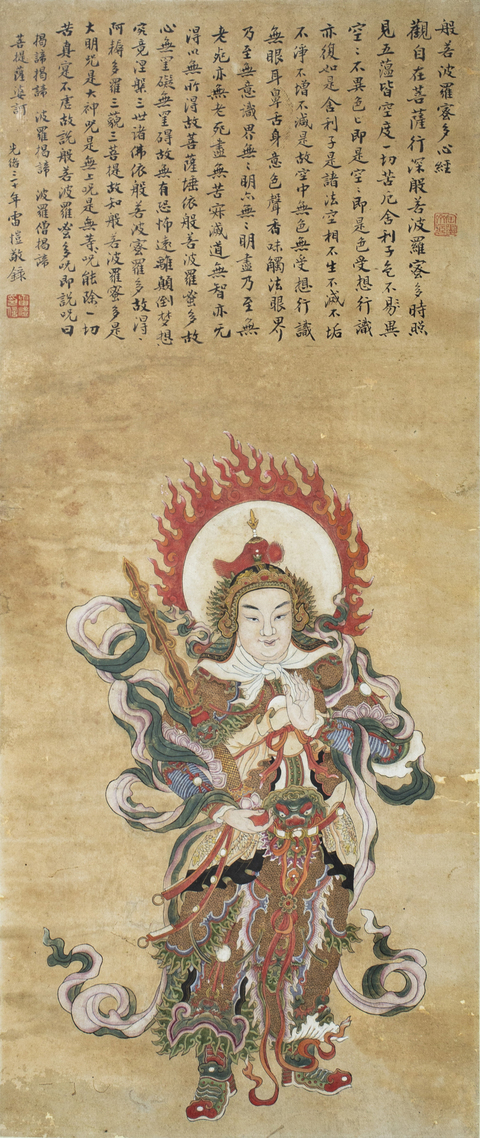 般若波羅蜜多心經
觀自在菩薩行深般若波羅蜜多時照
見五蘊皆空度一切苦厄舍利子色不異
空〻不異色〻即是空〻即是色受想行識
亦復如是舍利子是諸法空相不生不滅不垢
不淨不增不減是故空中無色無受想行識
無眼耳鼻舌身意色聲香味觸法眼界
乃至無意識界無〻明亦無〻明盡乃至無
老死亦無老死盡無苦寂滅道無智亦无
得以無所得故菩薩埵依般若波羅蜜多故
心無罣礙無罣碍故無有恐怖遠離顛倒夢想
究竟涅槃三世諸佛依般若波羅蜜多故得〻
阿耨多羅三藐三菩提故知般若波羅蜜多是
大明咒是大神咒是無上咒是無等咒能除一切
苦真寔不虛故說般若波羅蜜多咒即說咒曰
揭諦揭諦 波羅揭諦 波羅僧揭諦
菩提薩婆訶
三十年雪愷敬錄